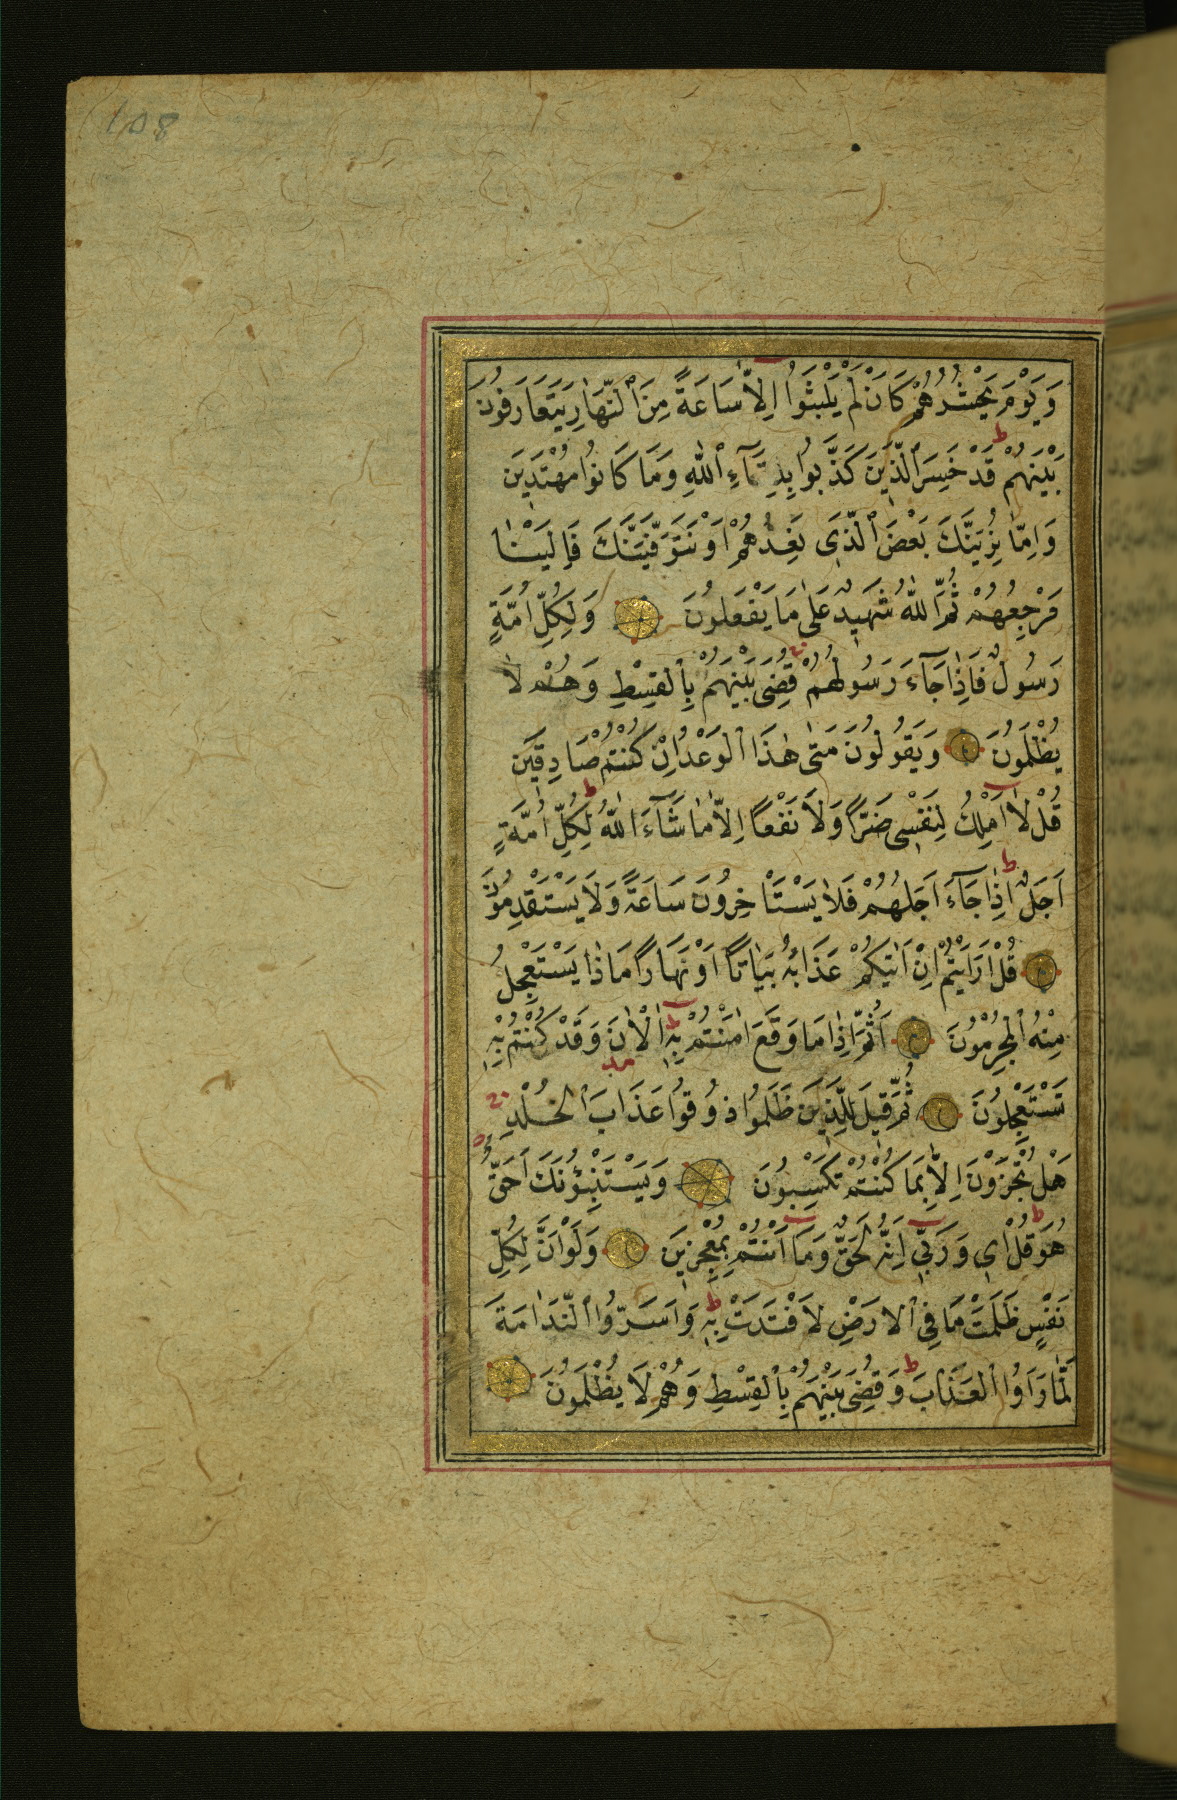 108
وَيَوْمَ يَحْشُرُهُمْ كَاَنْ لَمْ يَلْبَثُوا اِلَّا سَاعَةً مِنَ النَّهَارِ يَتَعَارَفُونَ
بَيْنَهُمْ ط قَدْ خَسِرَ الَّذِينَ كَذَّبُوا بِلِقَآءِ اللّٰهِ وَمَا كَانُوا مُهْتَدِينَ
وَاِمَّا نُرِيَنَّكَ بَعْضَ الَّذِى نَعِدُهُمْ اَوْ نَتَوَفَّيَنَّكَ فَاِلَيْنَا
مَرْجِعُهُمْ ثُمَّ اللّٰهُ شَهِيدٌ عَلٰى مَا يَفْعَلُونَ وَلِكُلِّ اُمَّةٍ
رَسُولٌ فَاِذَا جَآءَ رَسُولُهُمْ قُضِىَ بَيْنَهُمْ بِالْقِسْطِ وَهُمْ لَا
يُظْلَمُونَ وَيَقُولُونَ مَتٰى هٰذَا الْوَعْدُ اِنْ كُنْتُمْ صَادِقِينَ
قُلْ لَا اَمْلِكُ لِنَفْسِى ضَرًّا وَلَا نَفْعًا اِلَّا مَا شَآءَ اللّٰهُ ط لِكُلِّ اُمَّةٍ
اَجَلٌ ط اِذَا جَآءَ اَجَلُهُمْ فَلَا يَسْتَاْخِرُونَ سَاعَةً وَلَا يَسْتَقْدِمُونَ
قُلْ اَرَاَيْتُمْ اِنْ اَتٰيكُمْ عَذَابُهُ بَيَاتًا اَوْ نَهَارًا مَاذَا يَسْتَعْجِلُ
مِنْهُ الْمُجْرِمُونَ اَثُمَّ اِذَا مَا وَقَعَ اٰمَنْتُمْ بِهِ ط اٰلْاٰنَ وَقَدْ كُنْتُمْ بِهِ
تَسْتَعْجِلُونَ ثُمَّ قِيلَ لِلَّذِينَ ظَلَمُوا ذُوقُوا عَذَابَ الْخُلْدِ
هَلْ تُجْزَوْنَ اِلَّا بِمَا كُنْتُمْ تَكْسِبُونَ وَيَسْتَنْبِؤُنَكَ اَحَقٌّ
هُوَ ط قُلْ اِى وَرَبِّى اِنَّهُ لَحَقٌّ وَمَا اَنْتُمْ بِمُعْجِزِينَ وَلَوْ اَنَّ لِكُلِّ
نَفْسٍ ظَلَمَتْ مَا فِى الْاَرْضِ لَافْتَدَتْ بِهِ ط وَاَسَرُّوا النَّدَامَةَ
لَمَّا رَاَوُا الْعَذَابَ ط وَقُضِىَ بَيْنَهُمْ بِالْقِسْطِ وَهُمْ لَا يُظْلَمُونَ